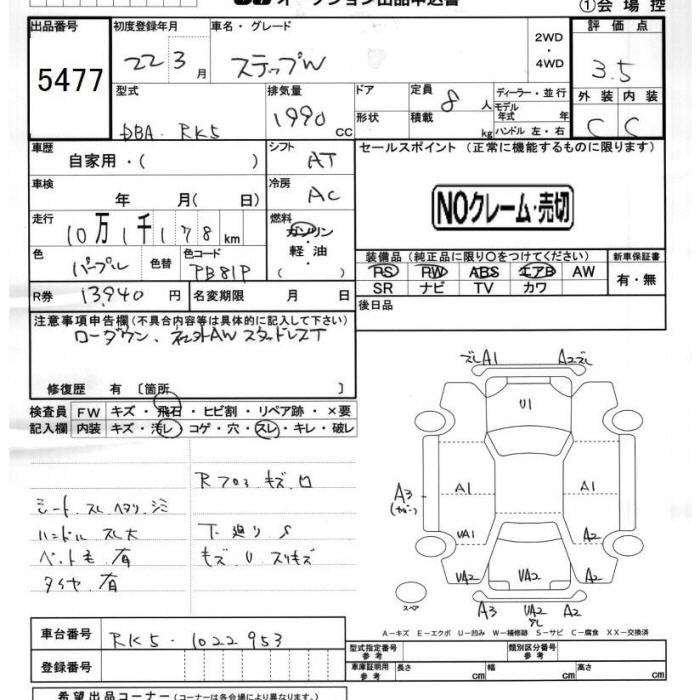 オークション出品申込書
①会場控
出品番号 初度登録年月 車名・グレード 2WD ・4WD 評価点
5477 22 3月 ステップW 3.5
型式 排気量 ドア 定員 8人 ディーラー・並行 外装 内装
DBA-RK5 1990cc 形状 積載 kg モデル年式 年 ハンドル 左・右 C C
車歴 自家用・( ) シフト AT セールスポイント (正常に機能するものに限ります)
車検 年 月( 日) 冷房 AC
NOクレーム・売切
走行 10万1千178km 燃料 ガソリン 軽油 ( )
色 パープル 色替 色コード PB81P
装備品 (純正品に限り○をつけてください) 新車保証書
PS PW ABS エアB AW 有・無
SR ナビ TV カワ
R券 13,940円 名変期限 月 日 後日品
注意事項申告欄 (不具合内容等は具体的に記入して下さい)
ローダウン、 AW スタッドレスT
修復歴 有 〔箇所 〕
検査員 FW キズ・飛石・ヒビ割・リペア跡・×要
記入欄 内装 キズ・汚レ・コゲ・穴・スレ・キレ・破レ
ズレA1 A2ズレ
U1
A1 A1
A3
UA1 A2
UA2 UA2 A2
スペア A3 UA2
シート スレ ヘタリ シミ
ハンドル スレ大
ペット毛 有
タイヤ 有
キズ
下廻り S
キズ U スリキズ
A-キズ E-エクボ U-凹み W-補修跡 S-サビ C-腐食 XX-交換済
車台番号 RK5-1022953
登録番号
型式指定番号 参考 類別区分番号 参考
車庫証明用 参考 長さ cm 幅 cm 高さ cm
希望出品コーナー (コーナーは各会場により異なります。)